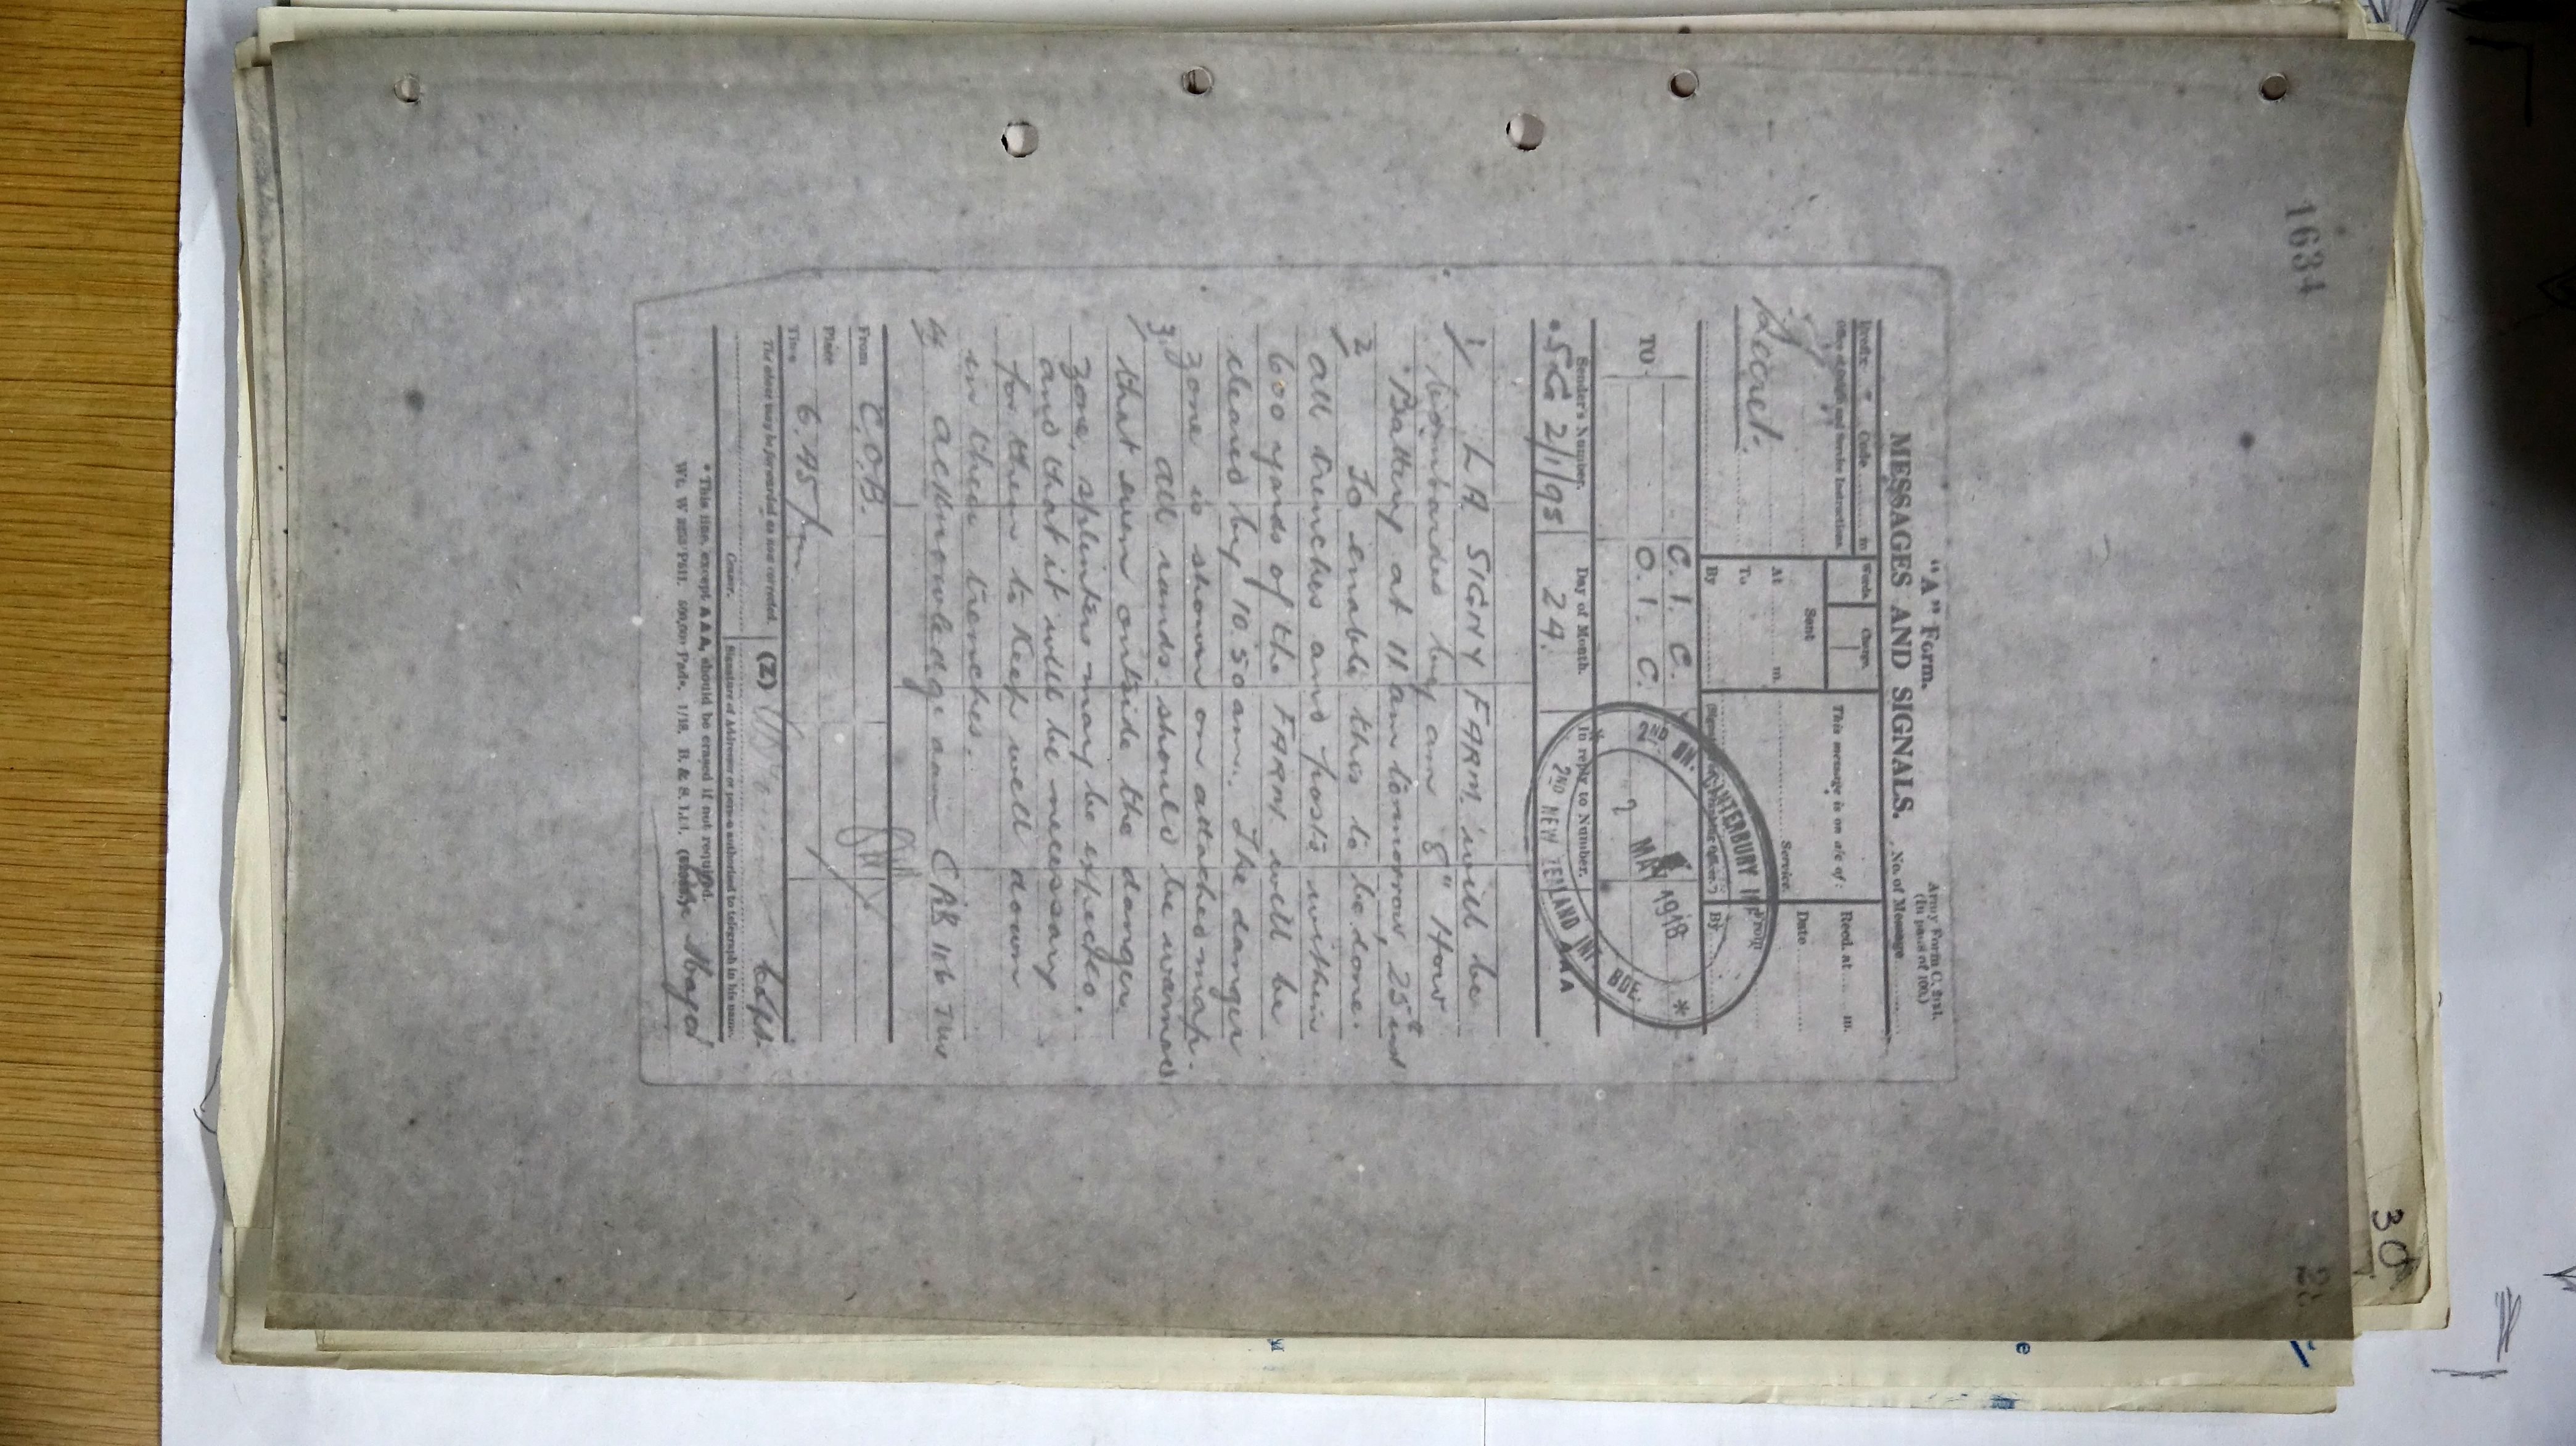 1634
"A" Form.
Army Form C. 2121.
(In pads of 100.)
MESSAGES AND SIGNALS.
No. of Message
Prefix Code m
Words.
Charge.
This message is on a/c of:
Recd. at m.
Office of Origin and Service Instructions.
Secret.
Sent
At m.
To
By
Service.
Date
From
By
TO
C. I. C.
O. I. C.
2ND BN. CANTERBURY INF
MAY 1918
2ND NEW ZEALAND INF BDE.
*
Sender's Number.
Day of Month.
In reply to Number.
AAA
* SC 2/1/95
24.
1/ LA SIGNY FARM will be
bombarded by an 8" How
Battery at 11 am tomorrow, 25th inst
2/ To enable this to be done,
all trenches and posts within
600 yards of the FARM will be
cleared by 10.50 am. The danger
zone is shown on attached map.
3/ All ranks should be warned
that even outside the danger
zone, splinters may be expected.
and that it will be necessary
for them to keep well down
in their trenches.
4/ Acknowledge aaa CAB 116 TWO
From C.O.B.
Place
Time 6.45 pm
The above may be forwarded as now corrected.
(Z)
Capt
Censor.
Signature of Addressor or person authorised to telegraph in his name.
* This line, except AAA, should be erased if not required.
500,000 Pads. 1/18. B. & S. Ltd.
Major
30